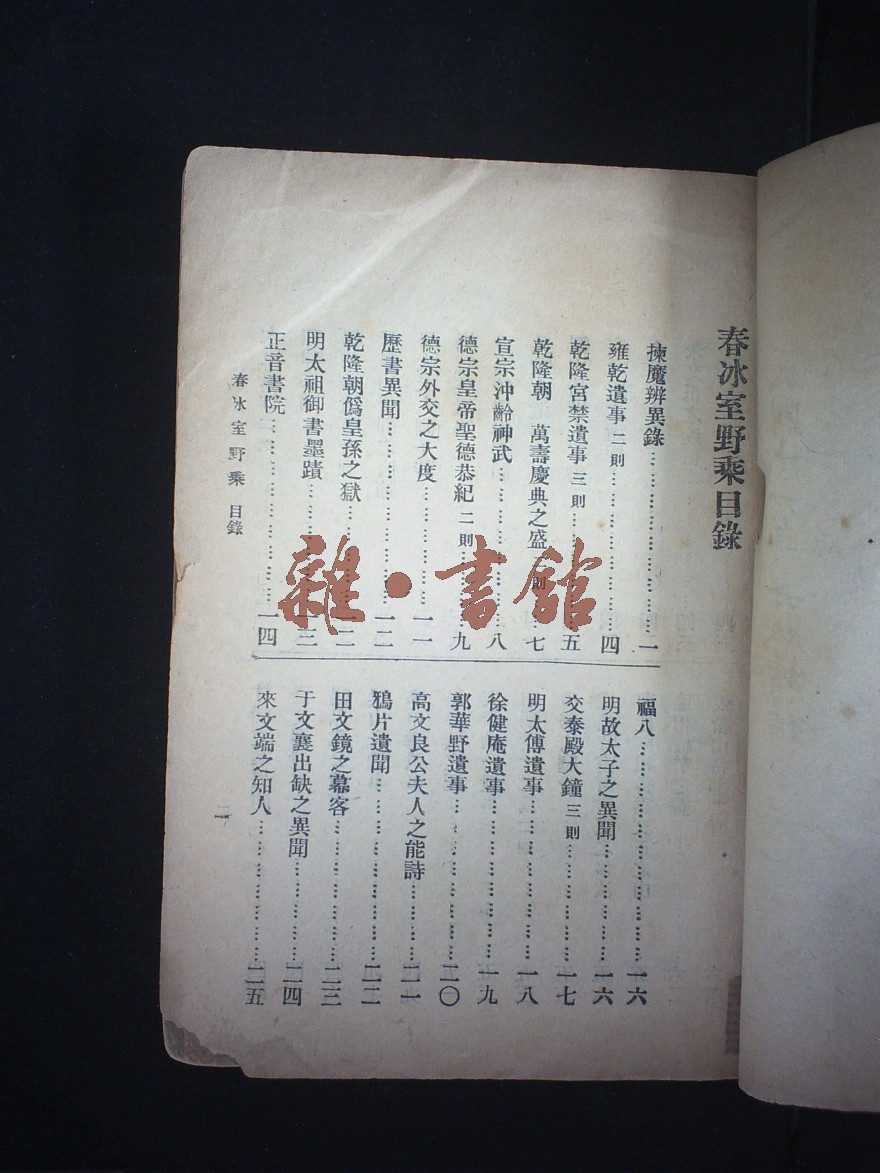 春冰室野乘目錄
揀魔辨異錄……一
雍乾遺事 二則……四
乾隆宮禁遺事 三則……五
乾隆朝 萬壽慶典之盛 二則……七
宣宗沖齡神武……八
德宗皇帝聖德恭紀 二則……九
德宗外交之大度……一一
歷書異聞……一二
乾隆朝僞皇孫之獄……一二
明太祖御書墨蹟……一三
正音書院……一四
福八……一六
明故太子之異聞……一六
交泰殿大鐘 三則……一七
明太傅遺事……一八
徐健庵遺事……一九
郭華野遺事……二〇
高文良公夫人之能詩……二一
鴉片遺聞……二二
田文鏡之幕客……二三
于文襄出缺之異聞……二四
來文端之知人……二五
春冰室野乘 目錄
一
雜·書館